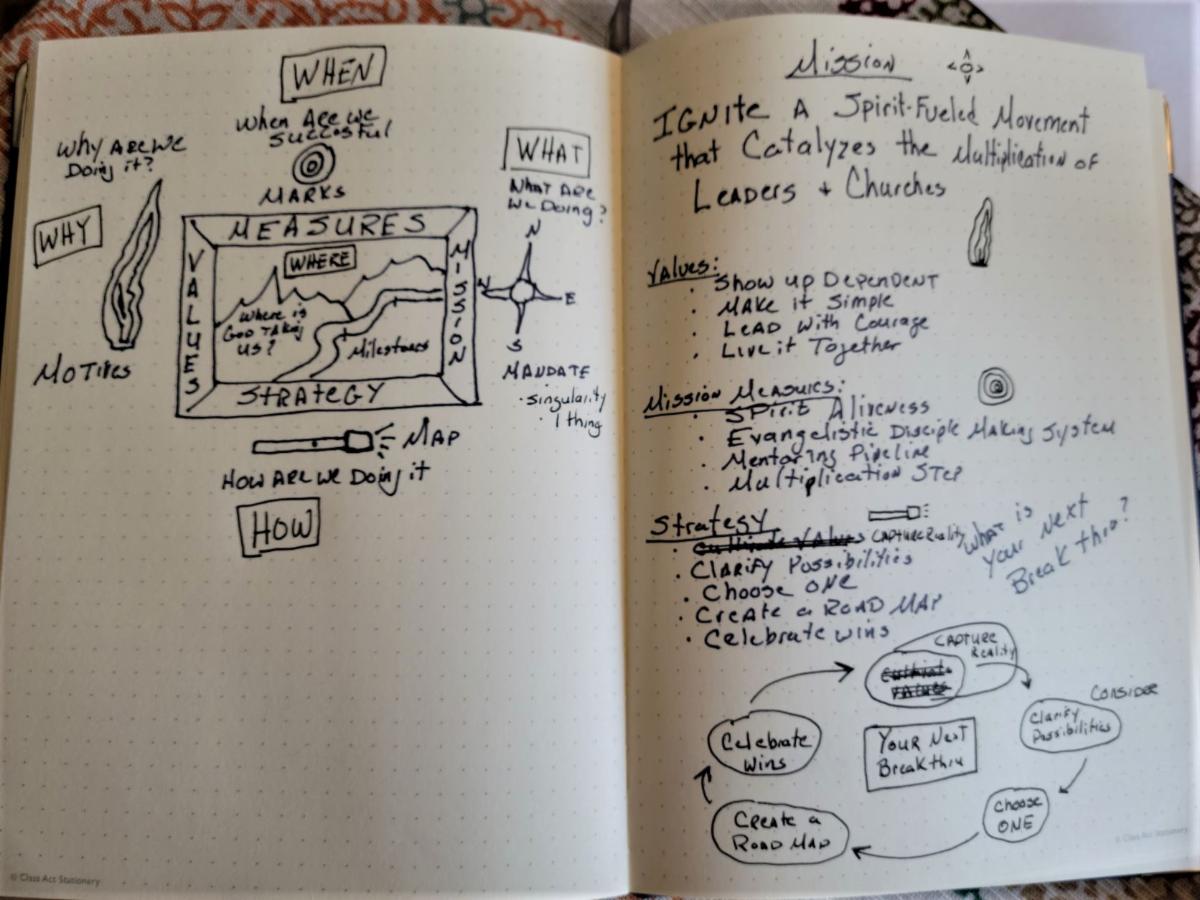 WHEN
When Are We
Succesful
MARKS
Why Are We
Doing it?
WHY
MOTIVES
WHAT
What Are
We Doing?
N
E
S
MANDATE
· singularity
· 1 thing
MEASURES
VALUES
MISSION
STRATEGY
WHERE
Where is
God Taking
us?
Milestones
MAP
How Are We Doing it
HOW
© Class Act Stationery
Mission
IGNITE A Spirit-Fueled Movement
that Catalyzes the Multiplication of
Leaders + Churches
Values:
· Show up Dependent
· Make it Simple
· Lead with Courage
· Live it Together
Mission Measures:
· Spirit Aliveness
· Evangelistic Disciple Making System
· Mentoring Pipeline
· Multiplication Step
Strategy
· Cultivate Values CAPTURE Reality
· Clarify Possibilities
· Choose ONE
· Create a ROAD MAP
· Celebrate wins
What is
Your Next
Break thru?
CAPTURE
Reality
Cultivate
Values
CONSIDER
Clarify
Possibilities
Choose
ONE
Create a
ROAD MAP
Celebrate
Wins
Your Next
Breakthru
© Class Act Stationery